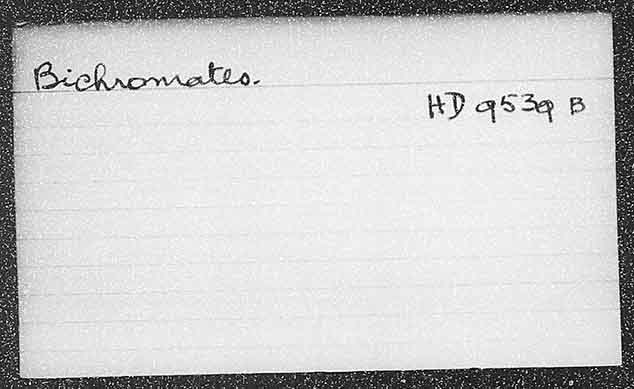 Bichromates.
HD 9539 B